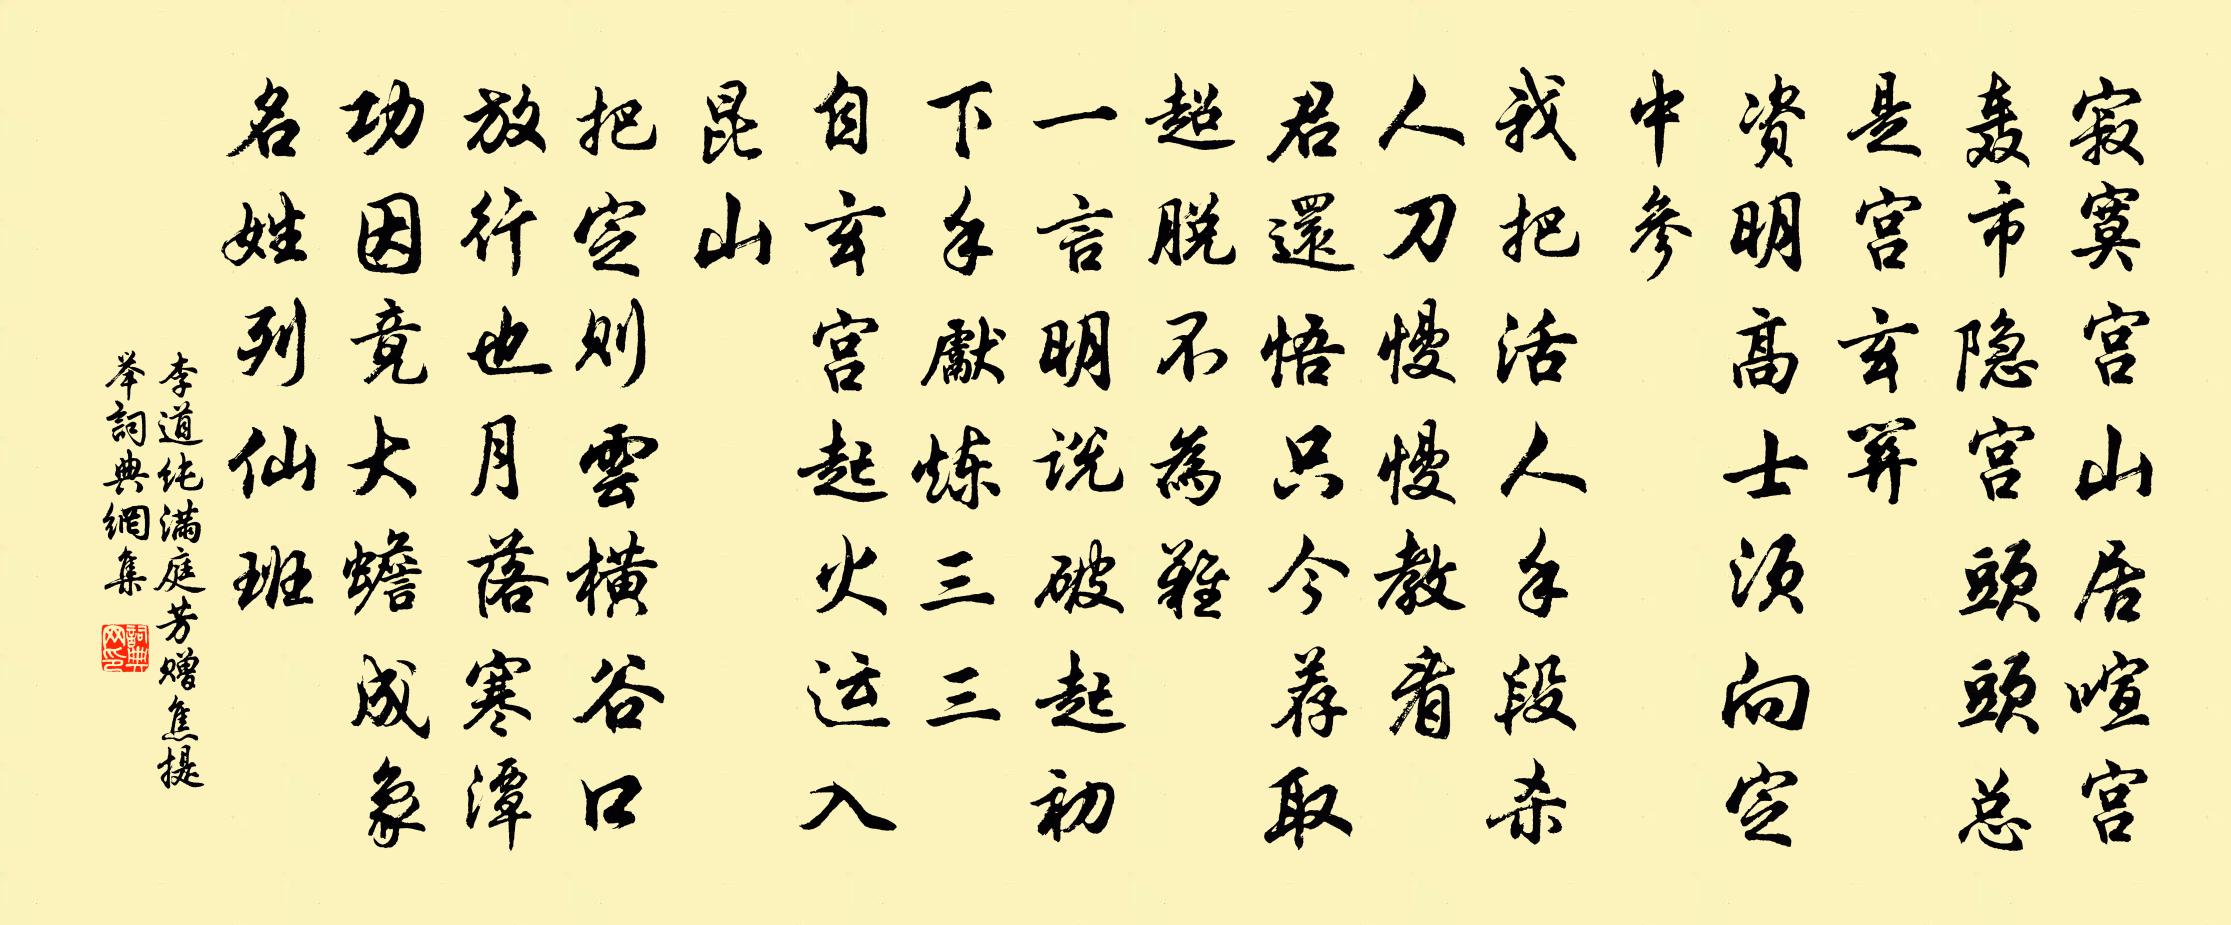 寂寞宫山居喧宫
轰市隐宫头头总
是宫玄关
资明高士须向定
中参
我把活人手段杀
人刀慢慢教看
君還悟只今荐取
超脱不為難
一言明说破起初
下手献炼三三
自玄宫起火运入
昆山
把定则雲横谷口
放行也月落寒潭
功因竟大蟾成象
名姓列仙班
李道纯满庭芳赠焦提
举詞典網集
詞典
网印